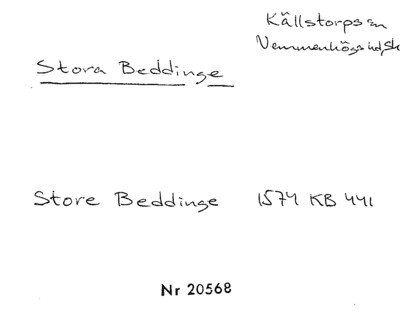 Källstorps sn
Vemmenhögs hd, Sk
Stora Beddinge
Store Beddinge 1574 KB 441
Nr 20568